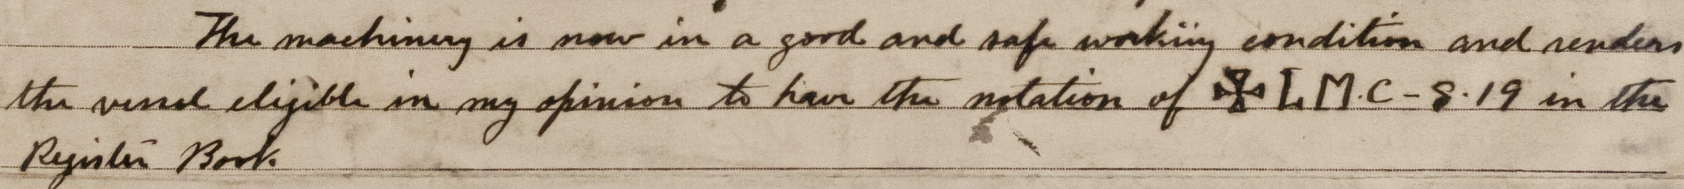 The machinery is now in a good and safe working condition and renders
the vessel eligible in my opinion to have the notation of ✠ L.M.C - 8.19 in the
Register Book